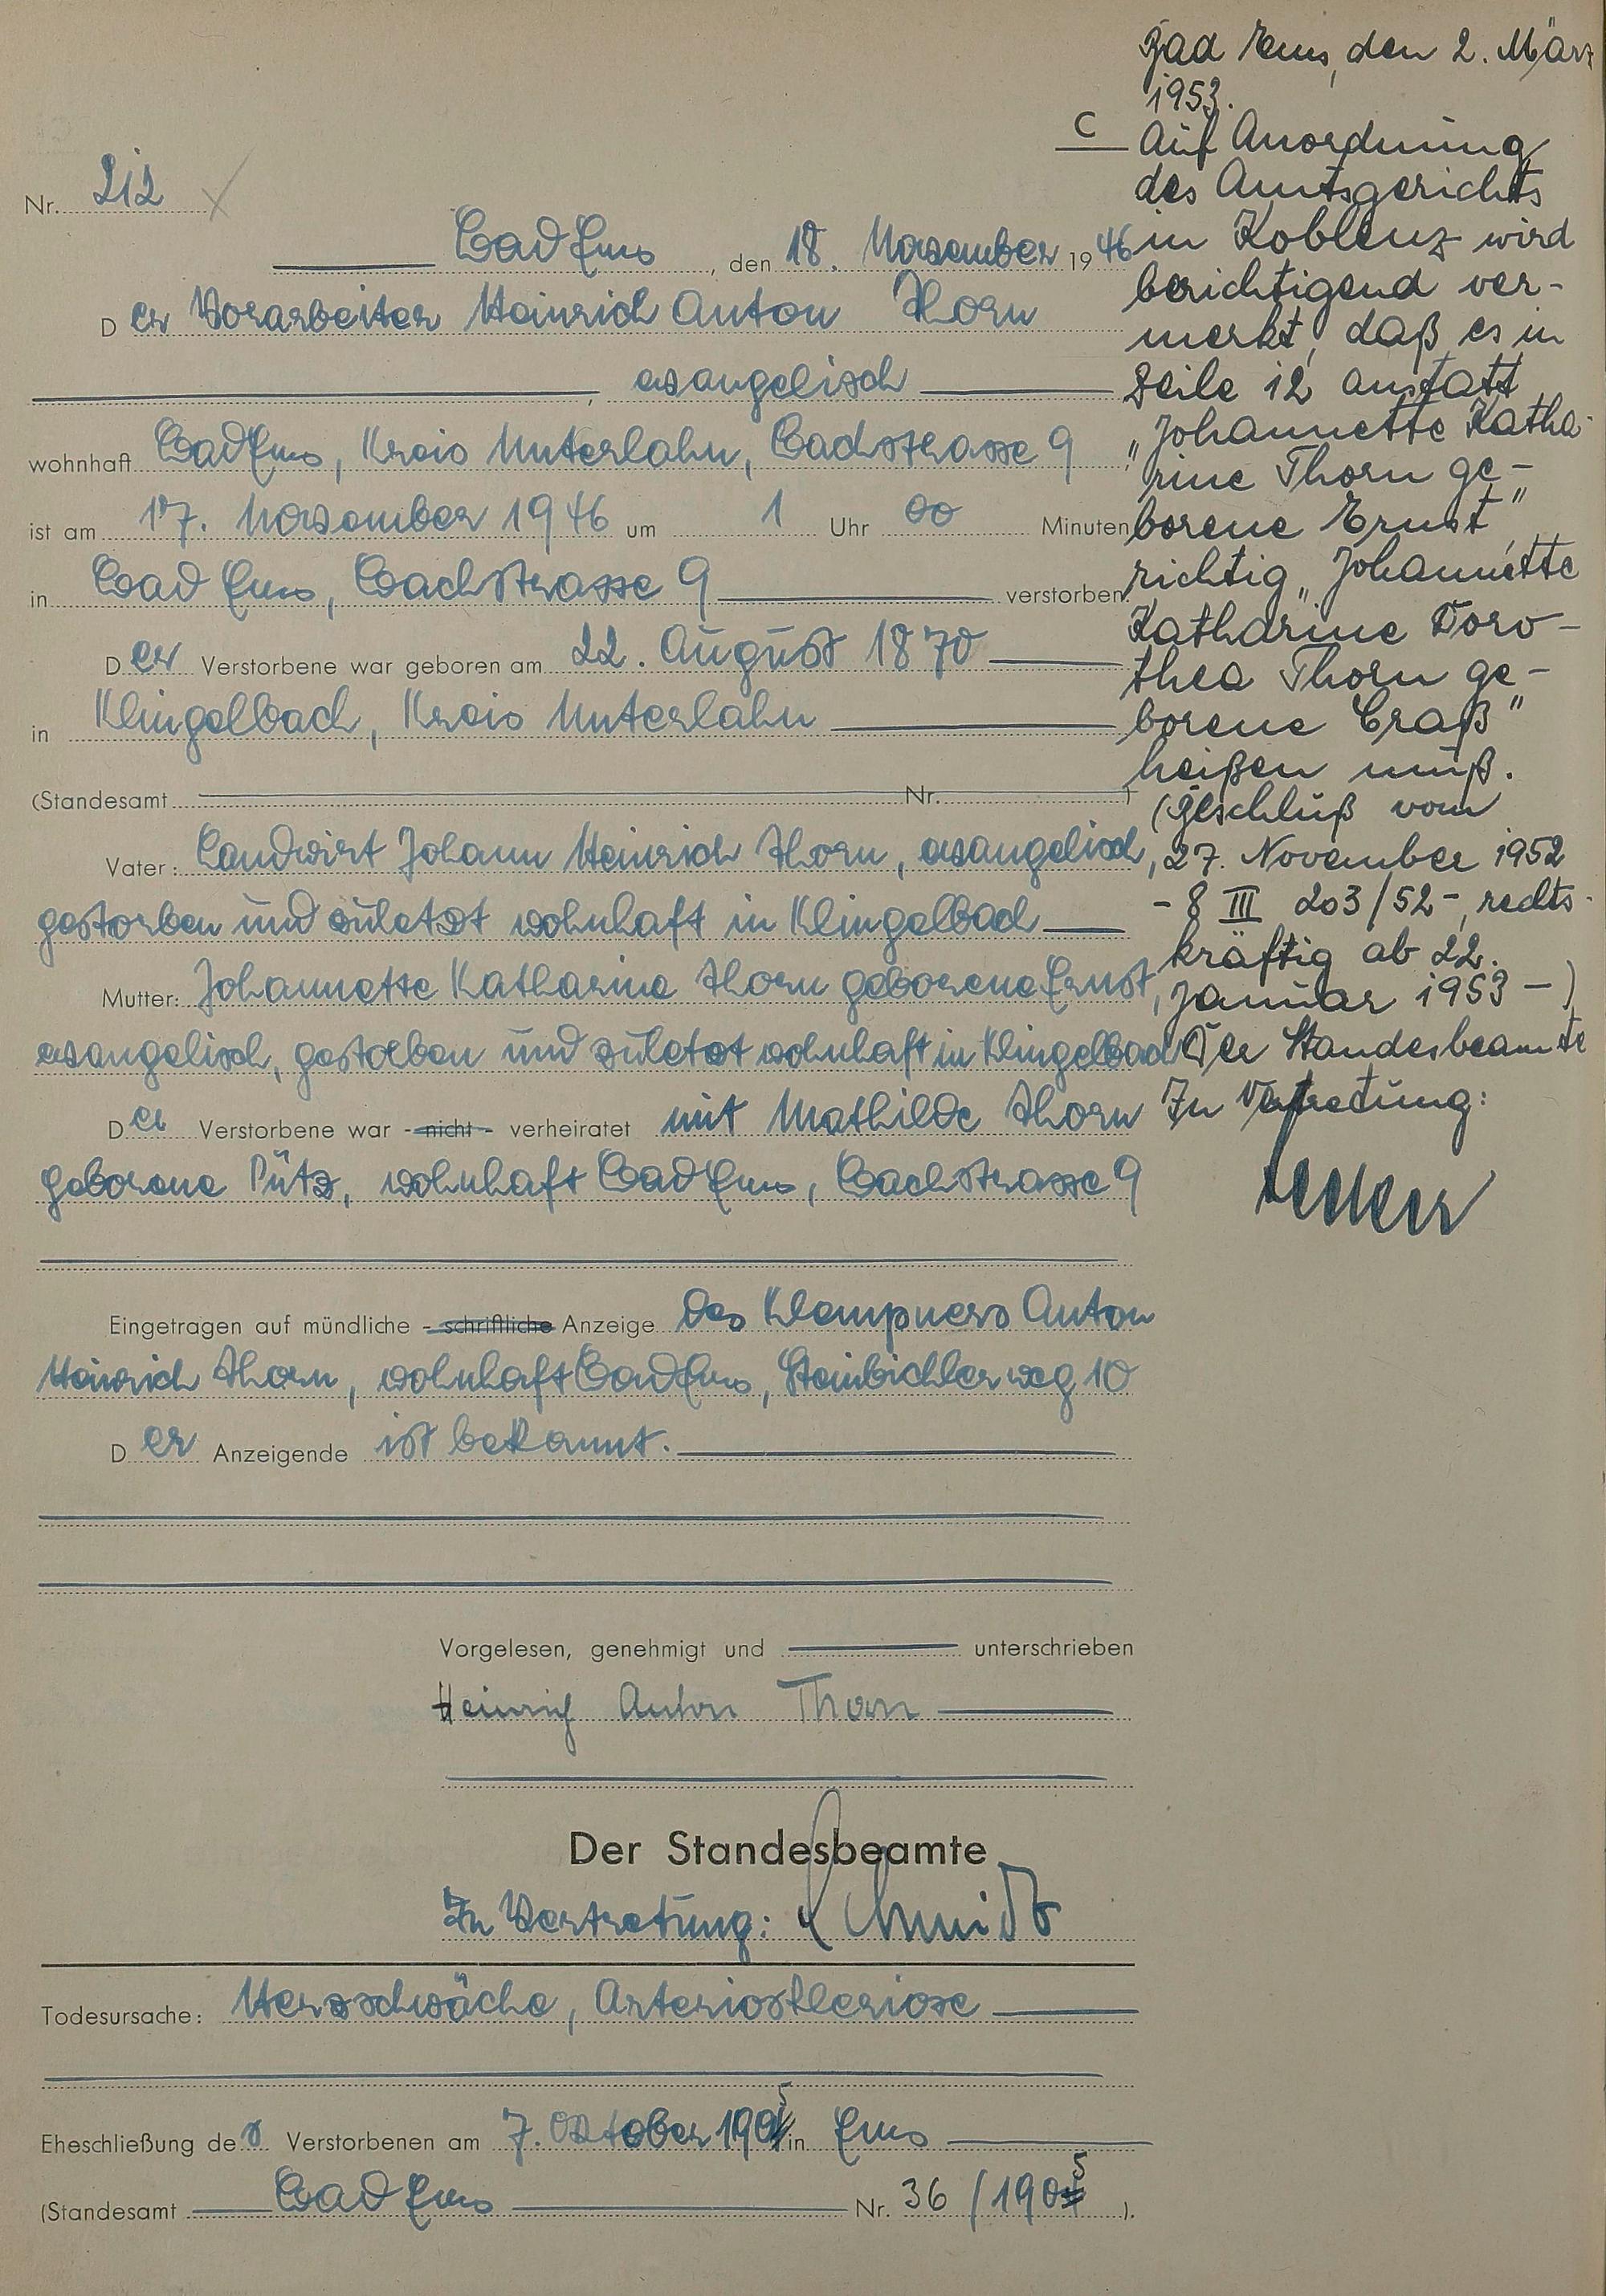 C
Nr. 212
Bad Ems, den 18. November 1946
Der Vorarbeiter Heinrich Anton Thorn
, evangelisch
wohnhaft Bad Ems, Kreis Unterlahn, Bachstrasse 9
ist am 17. November 1946 um 1 Uhr 00 Minuten
in Bad Ems, Bachstrasse 9 verstorben.
Der Verstorbene war geboren am 22. August 1870
in Klingelbach, Kreis Unterlahn
(Standesamt Nr. )
Vater: Landwirt Johann Heinrich Thorn, evangelisch,
gestorben und zuletzt wohnhaft in Klingelbach
Mutter: Johannette Katharina Thorn geborene Ernst,
evangelisch, gestorben und zuletzt wohnhaft in Klingelbach
Der Verstorbene war - nicht - verheiratet mit Mathilde Thorn
geborene Pütz, wohnhaft Bad Ems, Bachstrasse 9
Eingetragen auf mündliche - schriftliche Anzeige des Klempners Anton
Heinrich Thorn, wohnhaft Bad Ems, Steinbichlerweg 10
Der Anzeigende ist bekannt.
Vorgelesen, genehmigt und unterschrieben
Heinrich Anton Thorn
Der Standesbeamte
In Vertretung: Schmidt
Todesursache: Herzschwäche, Arteriosklerose
Eheschließung des Verstorbenen am 7. Oktober 1905 in Ems
(Standesamt Bad Ems Nr. 36/1905 ).
Bad Ems, den 2. März
1953.
Auf Anordnung
des Amtsgerichts
in Koblenz wird
berichtigend ver-
merkt, daß es in
Zeile 12 anstatt
"Johannette Katha-
rine Thorn ge-
borene Ernst"
richtig "Johannette
Katharine Doro-
thea Thorn ge-
borene Craß"
heißen muß.
(Beschluß vom
27. November 1952
- 8 III 203/52 -, rechts-
kräftig ab 22.
Januar 1953 - )
Der Standesbeamte
In Vertretung: